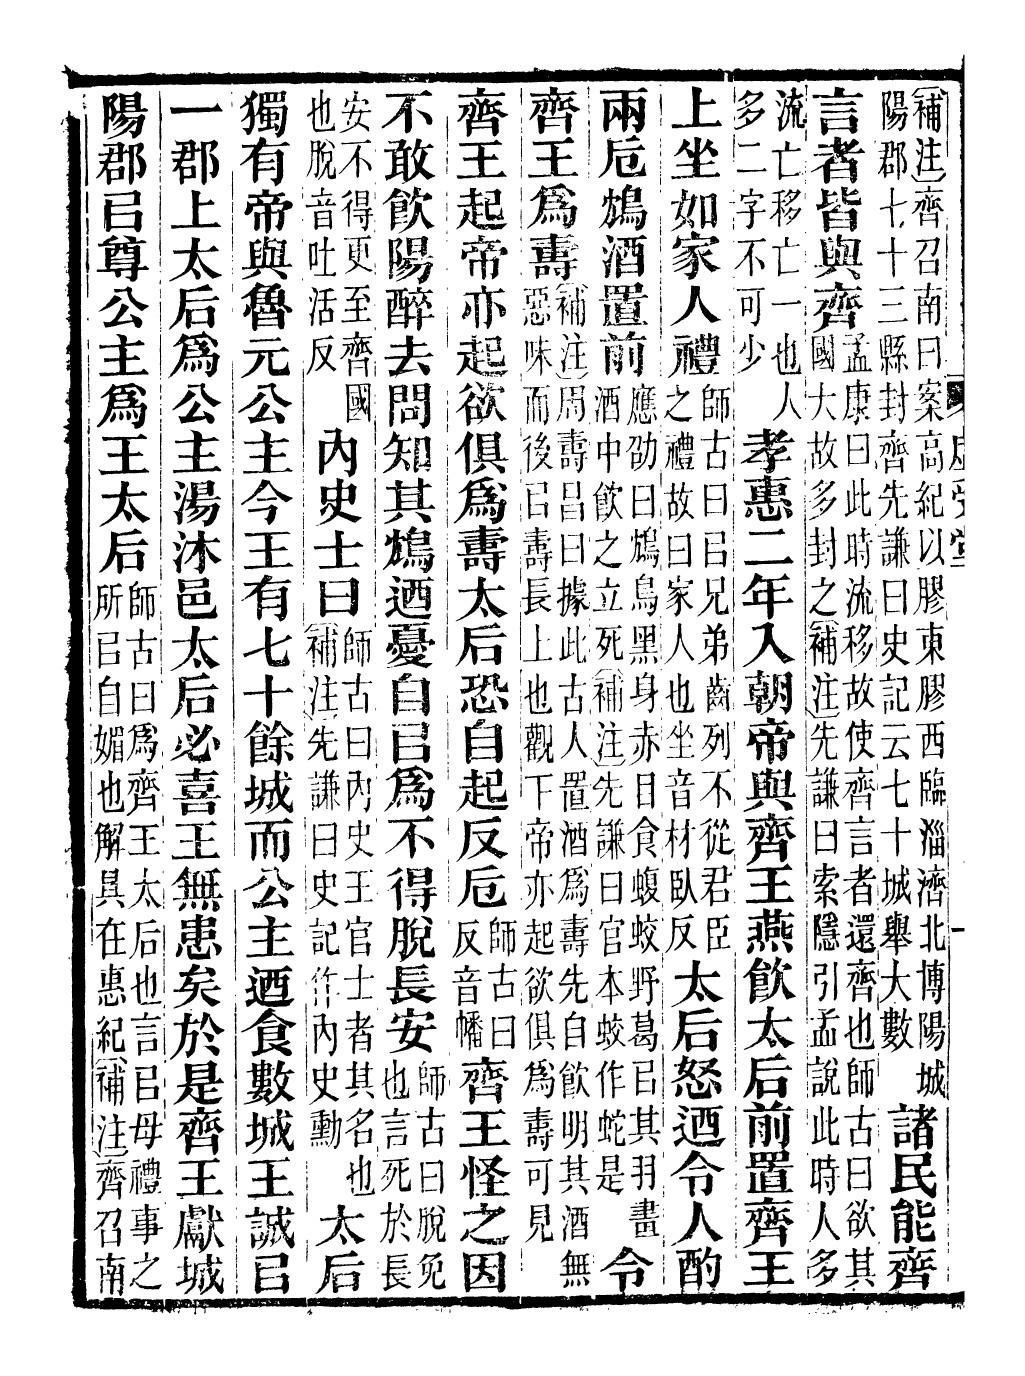 〔補注〕齊召南曰案高紀以膠東膠西臨淄濟北博陽城
陽郡七十三縣封齊先謙曰史記云七十城舉大數
諸民能齊
言者皆與齊
孟康曰此時流移故使齊言者還齊也師古曰欲其
國大故多封之〔補注〕先謙曰索隱引孟說此時人多
流亡移亡一也人
多二字不可少
孝惠二年入朝帝與齊王燕飲太后前置齊王
上坐如家人禮
師古曰㠯兄弟齒列不從君臣
之禮故曰家人也坐音材臥反
太后怒迺令人酌
兩卮鴆酒置前
應劭曰鴆鳥黑身赤目食蝮蛟野葛㠯其羽畫
酒中飲之立死〔補注〕先謙曰官本蛟作蛇是
令
齊王爲壽
〔補注〕周壽昌曰據此古人置酒爲壽先自飲明其酒無
惡味而後㠯壽長上也觀下帝亦起欲俱爲壽可見
齊王起帝亦起欲俱爲壽太后恐自起反卮
師古曰
反音幡
齊王怪之因
不敢飲陽醉去問知其鴆迺憂自㠯爲不得脫長安
師古曰脫免
也言死於長
安不得更至齊國
也脫音吐活反
內史士曰
師古曰內史王官士者其名也
〔補注〕先謙曰史記作內史勳
太后
獨有帝與魯元公主今王有七十餘城而公主迺食數城王誠㠯
一郡上太后爲公主湯沐邑太后必喜王無患矣於是齊王獻城
陽郡㠯尊公主爲王太后
師古曰爲齊王太后也言㠯母禮事之
所㠯自媚也解具在惠紀〔補注〕齊召南